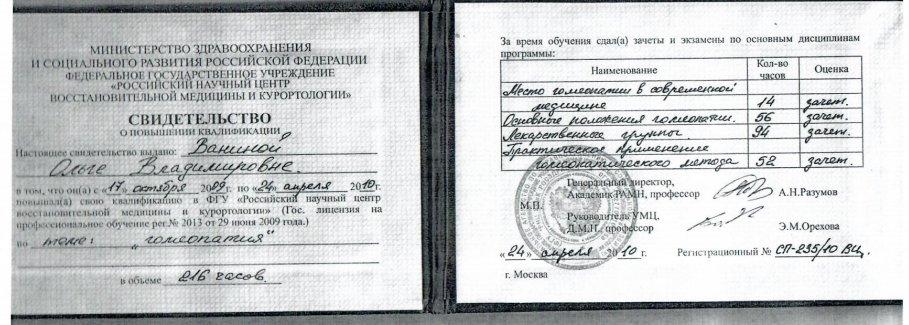 МИНИСТЕРСТВО ЗДРАВООХРАНЕНИЯ
И СОЦИАЛЬНОГО РАЗВИТИЯ РОССИЙСКОЙ ФЕДЕРАЦИИ
ФЕДЕРАЛЬНОЕ ГОСУДАРСТВЕННОЕ УЧРЕЖДЕНИЕ
«РОССИЙСКИЙ НАУЧНЫЙ ЦЕНТР
ВОССТАНОВИТЕЛЬНОЙ МЕДИЦИНЫ И КУРОРТОЛОГИИ»
СВИДЕТЕЛЬСТВО
О ПОВЫШЕНИИ КВАЛИФИКАЦИИ
Настоящее свидетельство выдано: Ваниной
Ольге Владимировне
в том, что он(а) с «17» октября 2009г. по «24» апреля 2010г.
повышал(а) свою квалификацию в ФГУ «Российский научный центр
восстановительной медицины и курортологии» (Гос. лицензия на
профессиональное обучение рег.№ 2013 от 29 июня 2009 года.)
по теме: „гомеопатия“
в объеме 216 часов.
За время обучения сдал(а) зачеты и экзамены по основным дисциплинам
программы:
Наименование Кол-во часов Оценка
Место гомеопатии в современной
медицине 14 зачет.
Основные положения гомеопатии. 56 зачет.
Лекарственные группы. 94 зачет.
Практическое применение
гомеопатического метода 52 зачет.
Генеральный директор,
Академик РАМН, профессор А.Н.Разумов
М.П.
Руководитель УМЦ,
Д.М.Н., профессор Э.М.Орехова
«24» апреля 2010 г. Регистрационный № СП-235/10 ВЦ.
г. Москва